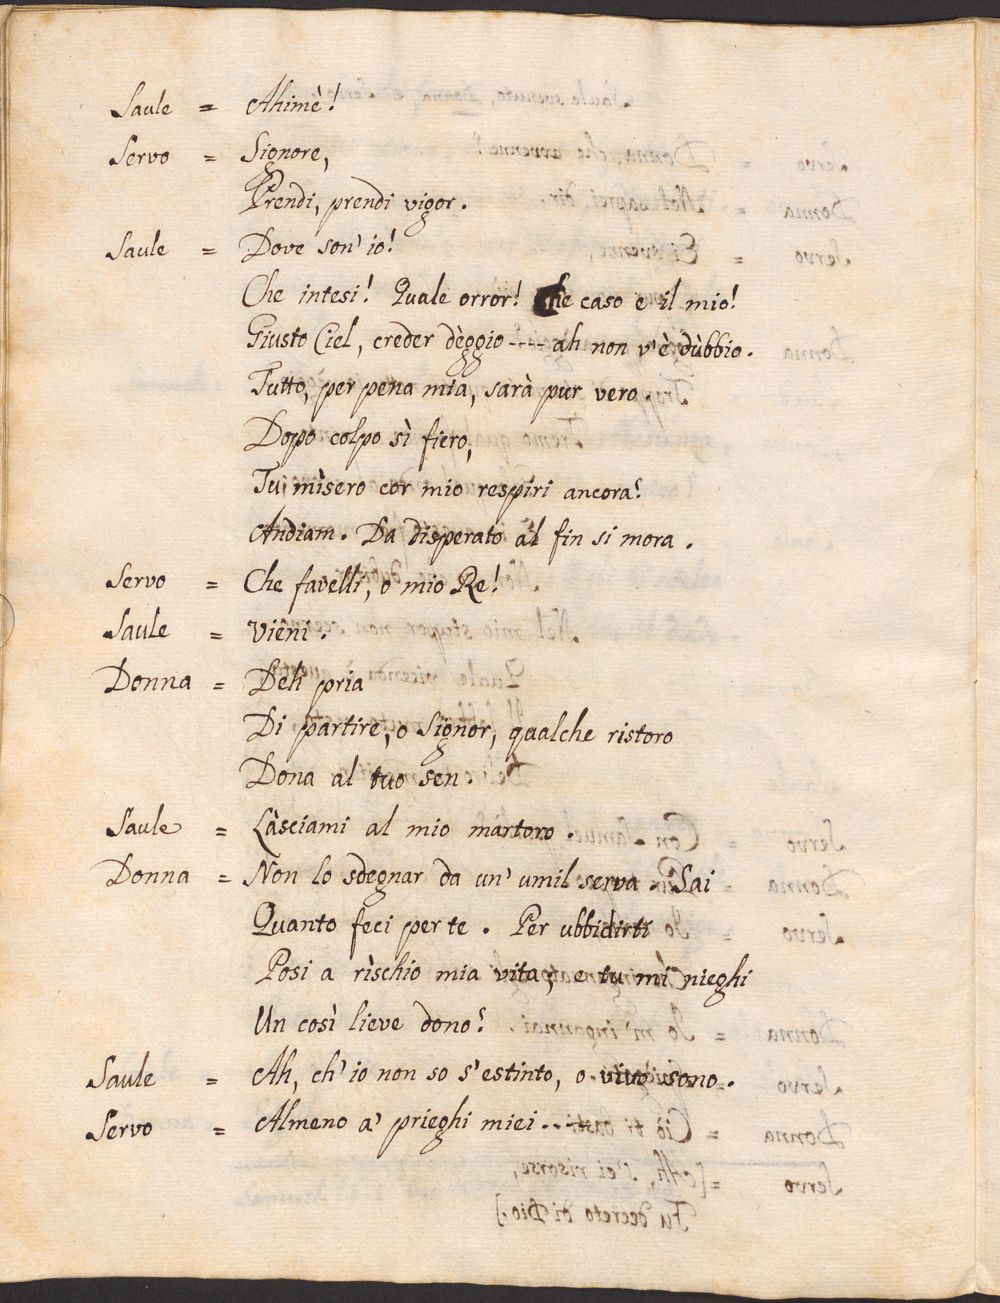 Saule = Ahimè!
Servo = Signore,
Prendi, prendi vigor.
Saule = Dove son' io!
Che intesi! Quale orror! Che caso e il mio!
Giusto Ciel, creder dèggio ---- ah non v'è dùbbio.
Tutto, per pena mia, sarà pur vero.
Dopo colpo sì fiero,
Tu mìsero cor mio respiri ancora?
Andiam. Da disperato al fin si mora.
Servo = Che favelli, o mio Re!
Saule = Vieni.
Donna = Deh pria
Di partire, o Signor, qualche ristoro
Dona al tuo sen.
Saule = Làsciami al mio martoro.
Donna = Non lo sdegnar da un' umil serva. Sai
Quanto feci per te. Per ubbidirti
Posi a rìschio mia vita; e tu mi nieghi
Un così lieve dono?
Saule = Ah, ch' io non so s'estinto, o vivo sono.
Servo = Almeno a' prieghi miei ----